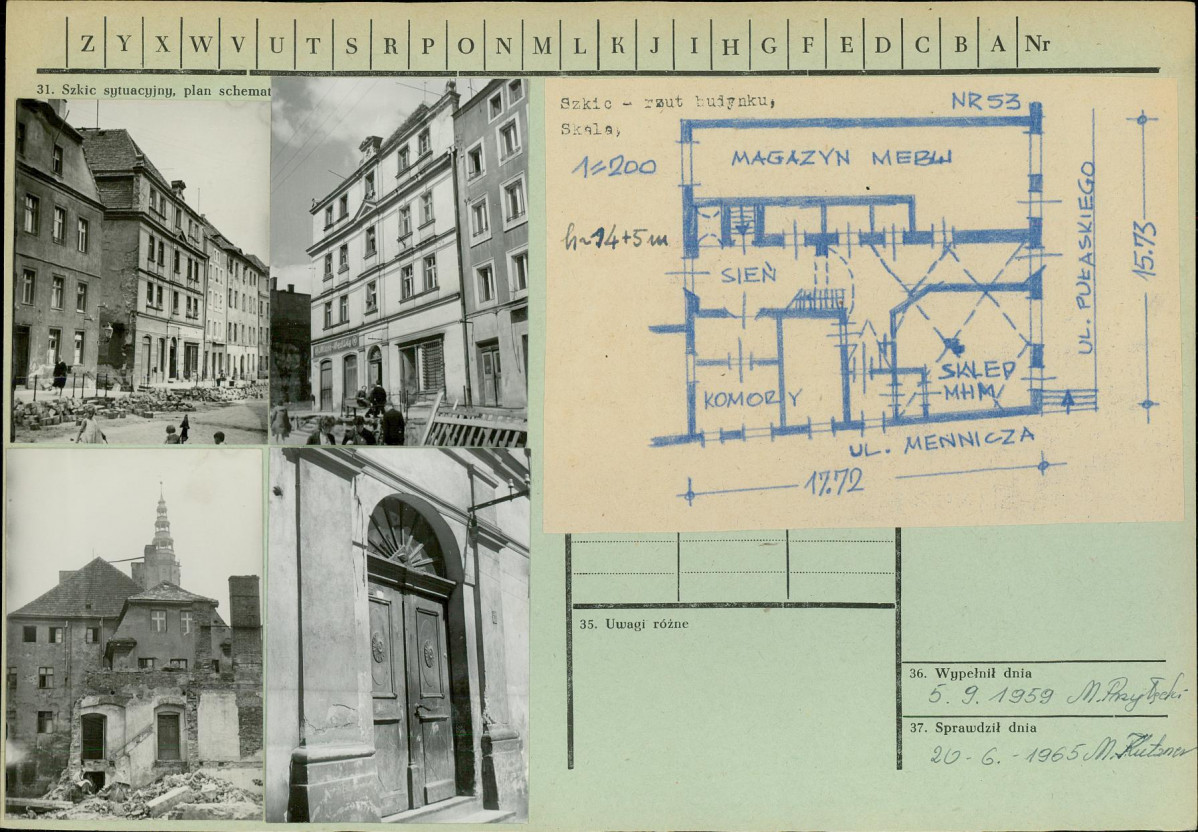 Z Y X W V U T S R P O N M L K J I H G F E D C B A Nr
31. Szkic sytuacyjny, plan schemat
Szkic - rzut budynku,
Skala,
1=200
h~14+5m
NR 53
MAGAZYN MEBLI
SIEŃ
KOMORY
SKLEP
MHM
UL. PUŁASKIEGO
15.73
UL. MENNICZA
17.72
35. Uwagi różne
36. Wypełnił dnia
5. 9. 1959 M. Przyłęcki
37. Sprawdził dnia
20 - 6. - 1965 M. Kutzner